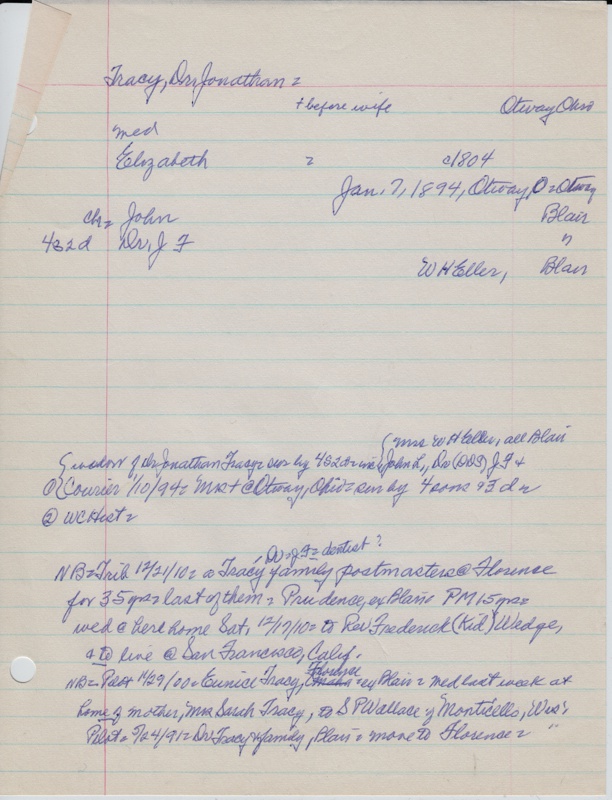 Tracy, Dr. Jonathan =
+ before wife Otway Ohio
med
Elizabeth = c1804
Jan. 7, 1894, Otway, O = Otway
ch = John Blair
4s 2d Dr. J F "
W H Eller, Blair
{ Mrs W H Eller, all Blair
{ widow of Dr Jonathan Tracy = sur by 4s 2d = { John L., Dr (DDS) J F +
① Courier 1/10/94 = Mrs + @ Otway, Ohio = sur by 4 sons + 2 d =
② WCHist =
Dr = J F = dentist?
NB = Trib 12/21/10 = a Tracy family postmasters @ Florence
for 35 yrs = last of them = Prudence, ex Blair = PM 15 yrs =
wed @ her home Sat, 12/17/10 = to Rev Frederick (Kid) Wedge,
+ to live @ San Francisco, Calif.
NB = Pilot 11/29/00 = Eunice Tracy, Florence = ex Blair = med last week at
home of mother, Mrs Sarah Tracy, to S P Wallace of Monticello, Wis.
Pilot = 9/24/91 = Dr Tracy + family, Blair = move to Florence = "